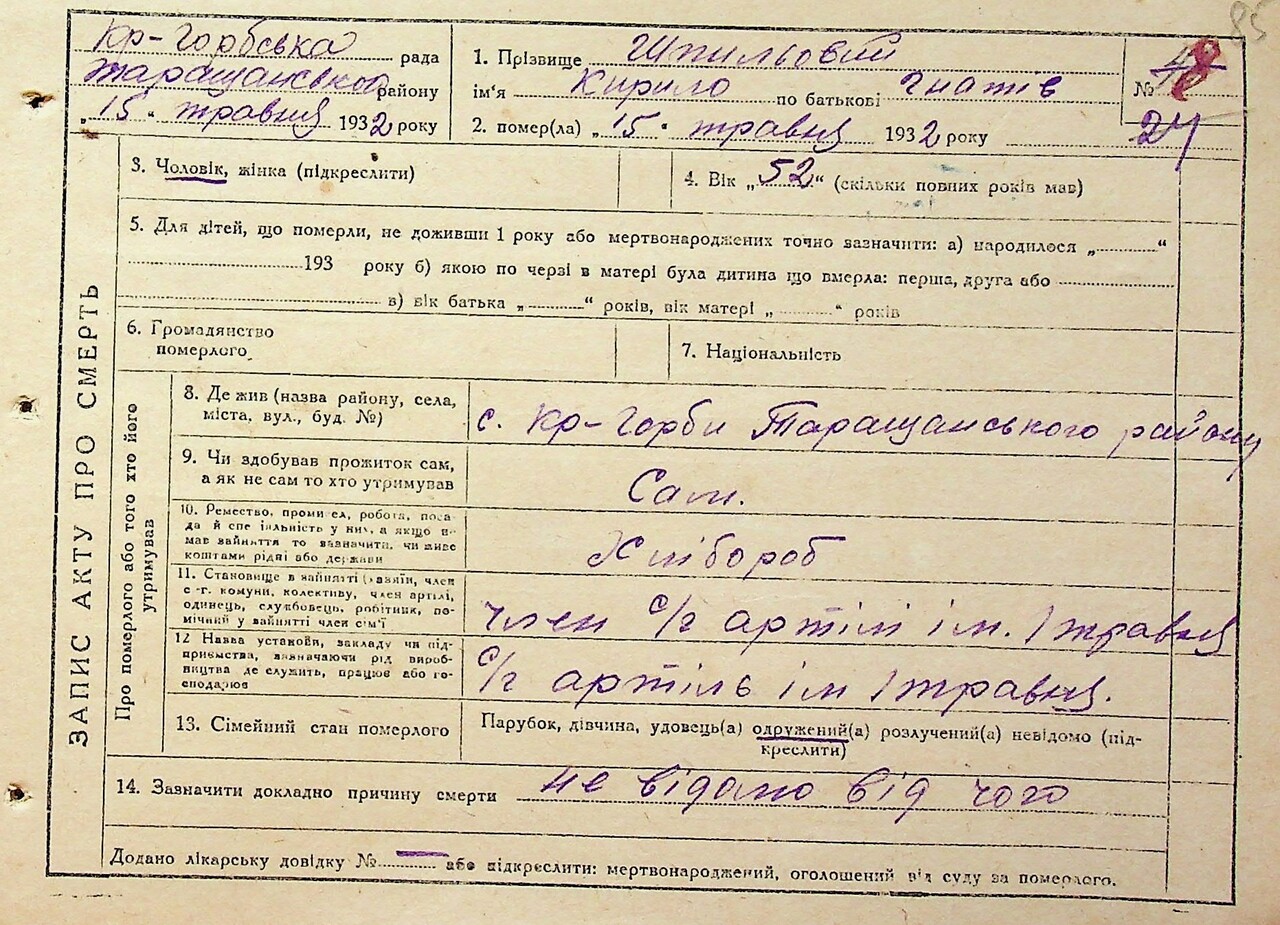 85
Кр-Горбська рада
Таращанського району
„15“ травня 1932 року
1. Прізвище Шпильовий
ім'я Кирило по батькові Гнатів
2. помер(ла) „15“ травня 1932 року
№ 8
24
ЗАПИС АКТУ ПРО СМЕРТЬ
3. Чоловік, жінка (підкреслити)
4. Вік „52“ (скільки повних років мав)
5. Для дітей, що померли, не доживши 1 року або мертвонароджених точно зазначити: а) народилося „..........“
....................193 року б) якою по черзі в матері була дитина що вмерла: перша, друга або ................
.................... в) вік батька „..........“ років, вік матері „..........“ років
6. Громадянство
померлого
7. Національність
Про померлого або того хто його
утримував
8. Де жив (назва району, села,
міста, вул., буд. №)
с. Кр-Горби Таращанського району
9. Чи здобував прожиток сам,
а як не сам то хто утримував
Сам.
10. Ремество, промисел, робота, поса-
да й спе іяльність у них, а якщо н-
мав зайняття то зазначити, чи живе
коштами рідні або держави
Хлібороб
11. Становище в зайнятті (хазяїн, член
с-г. комуни, колективу, член артілі,
одинець, службовець, робітник, по-
мічний у зайнятті член сім'ї
член с/г артілі ім. 1 травня
12 Назва установи, закладу чи під-
приємства, зазначаючи рід вироб-
ництва де служить, працює або го-
сподарює
с/г артіль ім 1 травня.
13. Сімейний стан померлого
Парубок, дівчина, удовець(а) одружений(а) розлучений(а) невідомо (під-
креслити)
14. Зазначити докладно причину смерти не відомо від чого
Додано лікарську довідку №— або підкреслити: мертвонароджений, оголошений від суду за померлого.